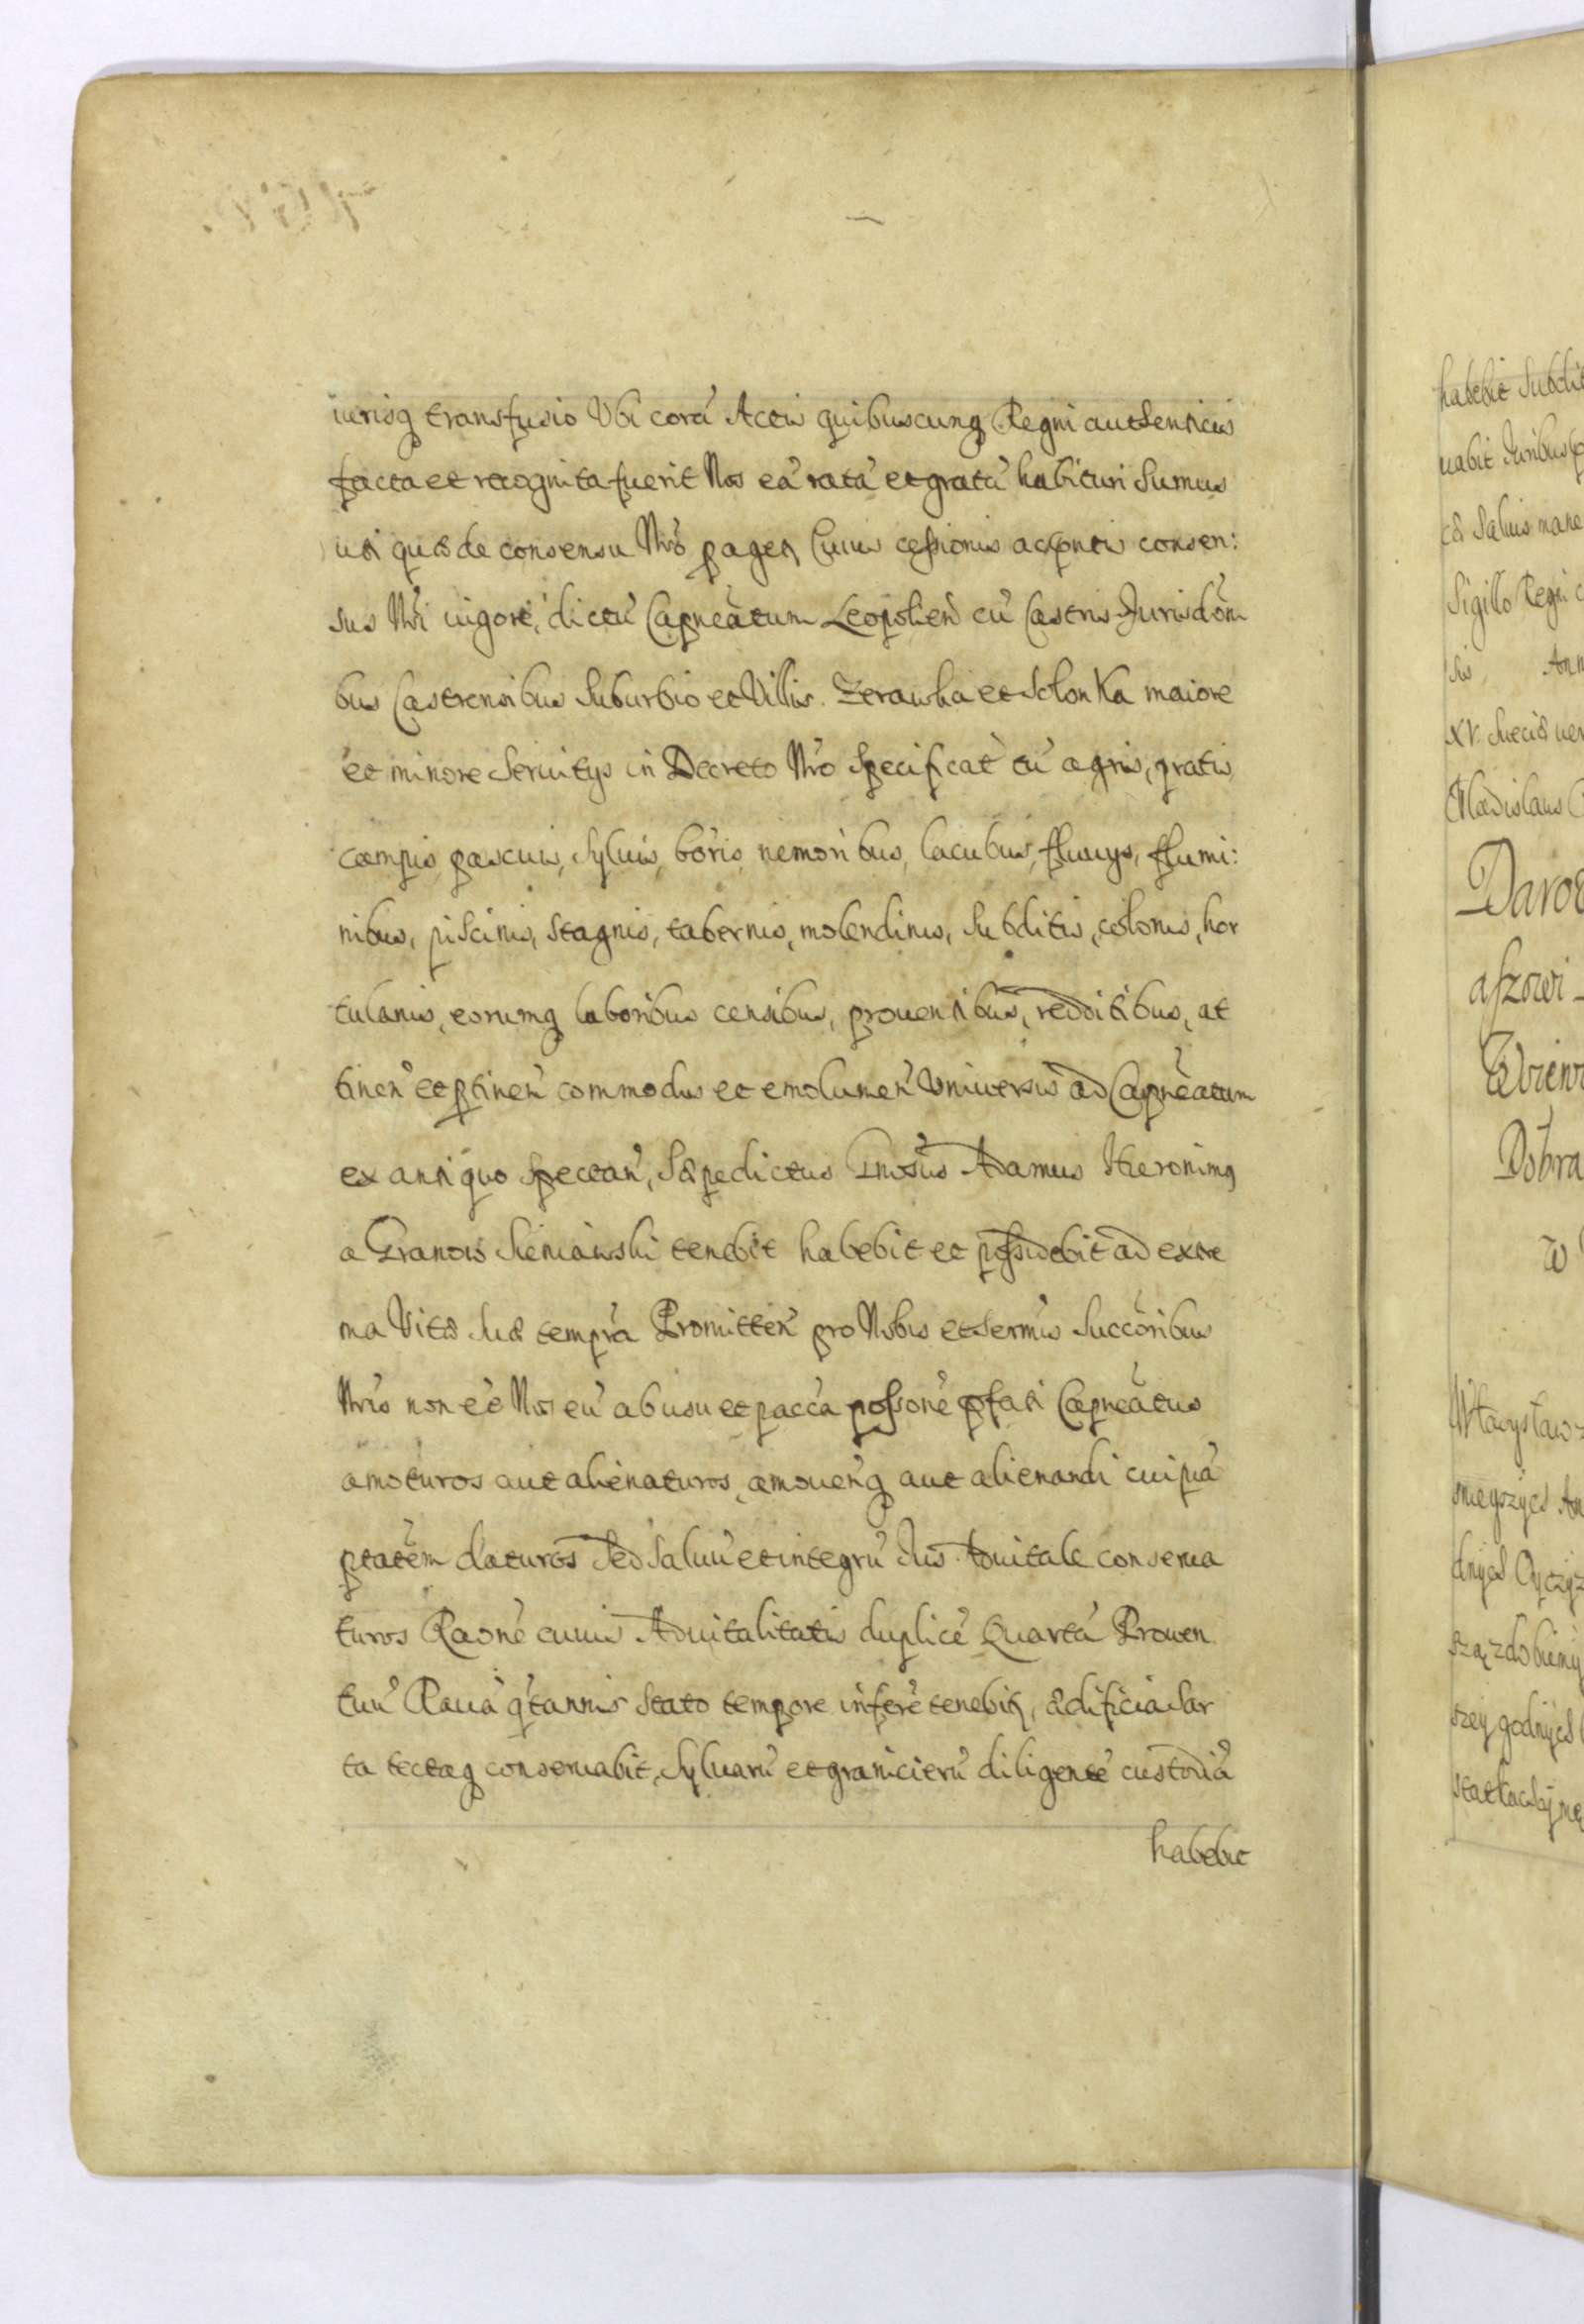 iurisq transfusio Vbi corā Actis quibuscunq Regni authenticis
facta et recognita fuerit Nos eā ratā et gratā habituri sumus
uti quæ de consensu Nrō page Cuius cessionis ac consen:
sus Nrī uigore, dictū Capneātum Leopolień cū Castris Jurisdōni
bus Castrensibus Suburbio et Villis. Zerawka et Solonka maiore
et minore Seruitys in Decreto Nrō Specificat cū agris, pratis,
campis, pascuis, Syluis, boris, nemoribus, lacubus, fluuys, flumi:
nibus, piscinis, stagnis, tabernis, molendinis, Subditis, colonis, hor
tulanis, eorumq laboribus censibus, prouentibus, redditibus, at
tineń et ptineń commodis et emolumeń Vniuersis ad Capneātum
ex antiquo Spectań, Sæpedictus Gnōsus Adamus Hieronimq
a Granow Sieniawski tenebit habebit et possidebit ad extre
ma Vitæ Suæ tempra Promitteń pro Nobis et Sermis Succōribus
Nrīs non eē Nos eū ab usu et pacca possōne pfati Capneātus
amoturos aut alienaturos, amoueńq aut alienandi cuipiā
ptatēm daturos Sed Saluū et integrū Jus Aduitale conserua
turos Raōne cuius Aduitalitatis duplicē Quartā Prouen
tuū Rauā qtannis Stato tempore inferē tenebit, ædificia Sar
ta tectaq conseruabit, Syluarū et granicierū diligentē custodiā
habebit
habebit Subdit
uabit Juribus
Saluis mane
Sigillo Regni
Sis Ann
XV. Sueciæ ver
Vladislaus
Daro
aszowi
Dobra
w
Władysław z
szey godnych